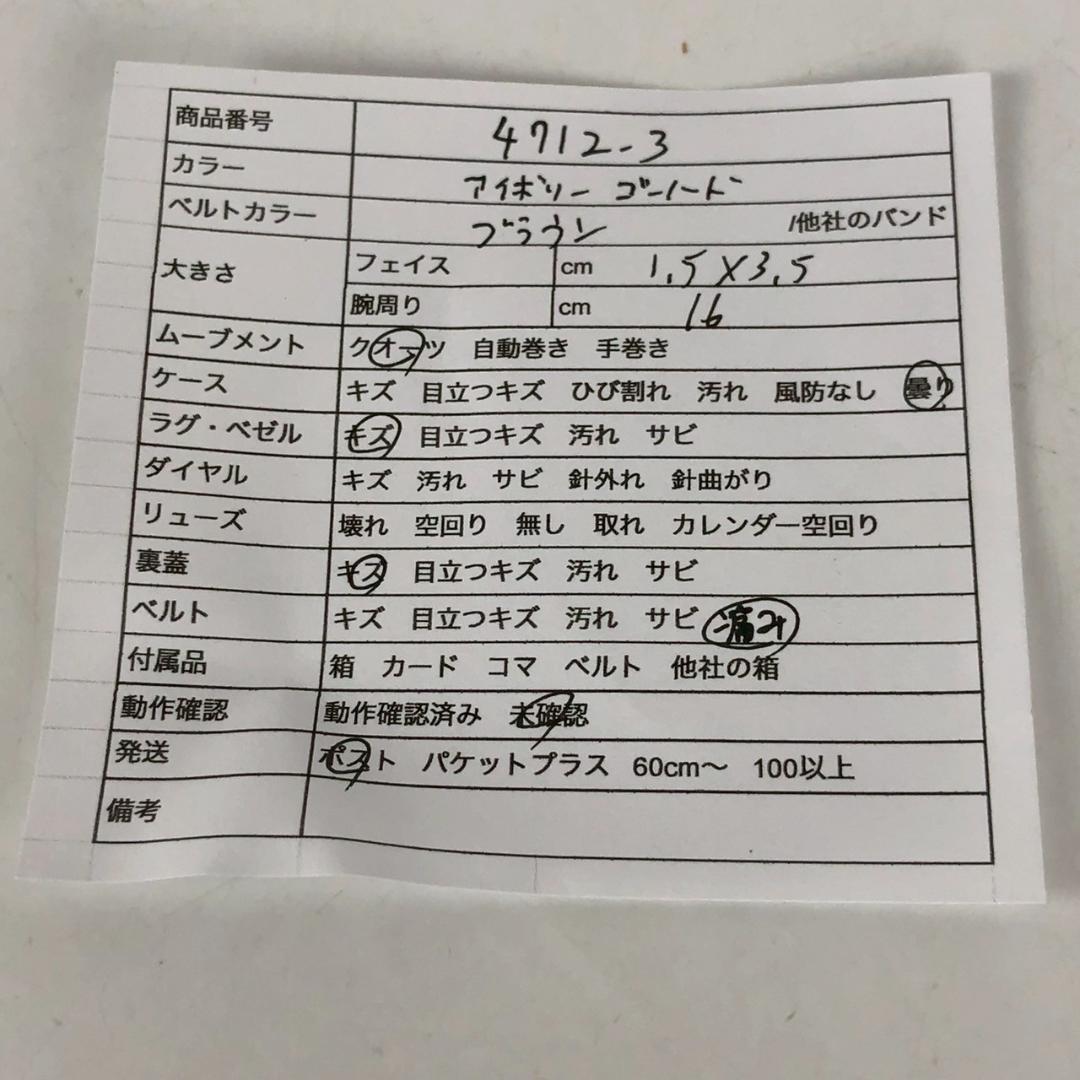 商品番号 4712-3
カラー アイボリー ゴールド
ベルトカラー ブラウン /他社のバンド
大きさ フェイス cm 1.5×3.5
腕周り cm 16
ムーブメント クオーツ 自動巻き 手巻き
ケース キズ 目立つキズ ひび割れ 汚れ 風防なし 曇り
ラグ・ベゼル キズ 目立つキズ 汚れ サビ
ダイヤル キズ 汚れ サビ 針外れ 針曲がり
リューズ 壊れ 空回り 無し 取れ カレンダー空回り
裏蓋 キズ 目立つキズ 汚れ サビ
ベルト キズ 目立つキズ 汚れ サビ 痛み
付属品 箱 カード コマ ベルト 他社の箱
動作確認 動作確認済み 未確認
発送 ポスト パケットプラス 60cm〜 100以上
備考